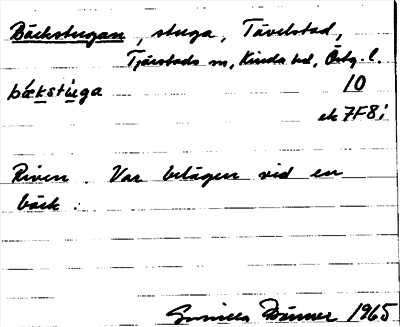 Bäckstugan, stuga, Tävelstad,
Tjärstads sn, Kinda hd, Östg. l.
bækstùga 10
ek 7F8i
Riven. Var belägen vid en
bäck.
Gunilla 1965